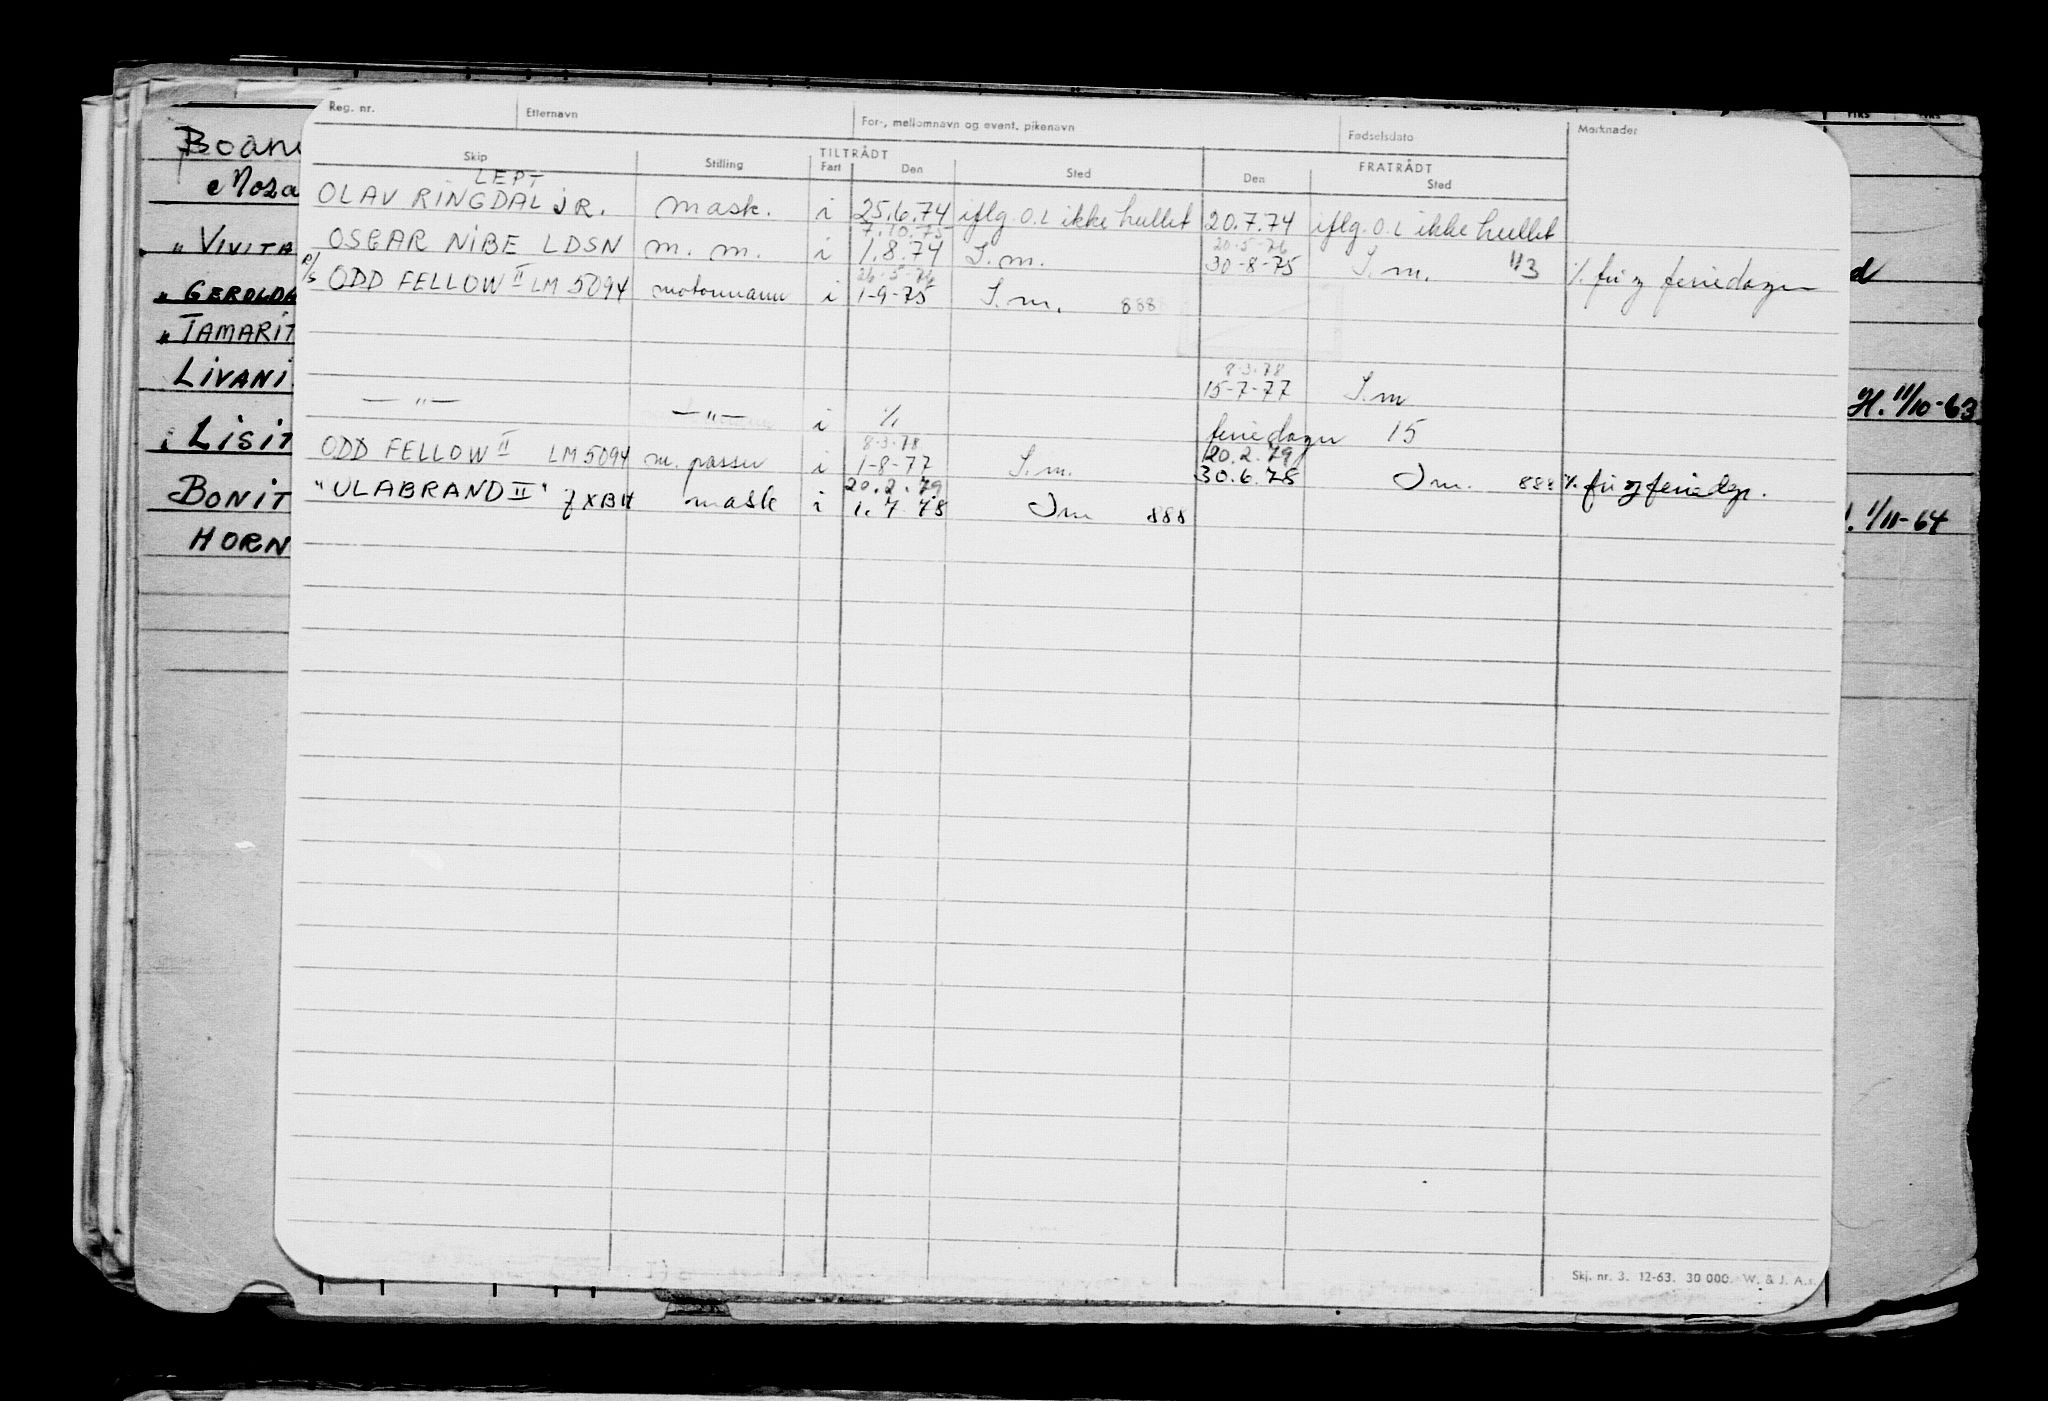 Reg. nr. Etternavn For-, mellomnavn og event. pikenavn Fødselsdato Merknader
TILTRÅDT FRATRÅDT
Skip Stilling Fart Den Sted Den Sted
LEPT
OLAV RINGDAL JR. mask. i 25.6.74 iflg. O.L ikke hullet 20.7.74 iflg. O.L ikke hullet
7.10.75 20-5-76
OSCAR NIBE LDSN m. m. i 1.8.74 S.m. 30-8-75 S.m. 43 % fri og feriedager
26-5-76
P/S ODD FELLOW II LM 5094 motormann i 1-9-75 S.m. 888
8.3.78
15-7-77 S.m
— " — — " — i % feriedager 15
8.3.78 20.2.79
ODD FELLOW II LM 5094 m. passer i 1-8-77 S.m. 30.6.78 Sm. 888 % fri og feriedgr.
20.2.79
"ULABRAND II" JXBH mask i 1.7 78 Sm 888
Skj. nr. 3. 12-63. 30 000. W. & J. A.s.
Boan
Moza
" VIVITA
" GEROLDA
" TAMARIT
LIVANI H. 11/10-63
LISIT
BONIT 1/11-64
HORN